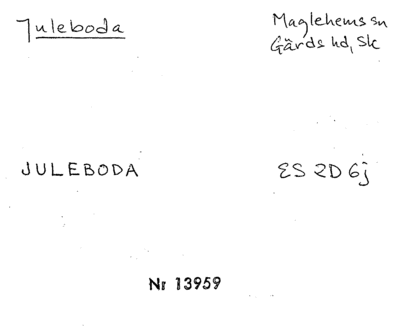 Juleboda
Maglehems sn
Gärds hd, Sk
JULEBODA
ES 2D 6j
Nr 13959